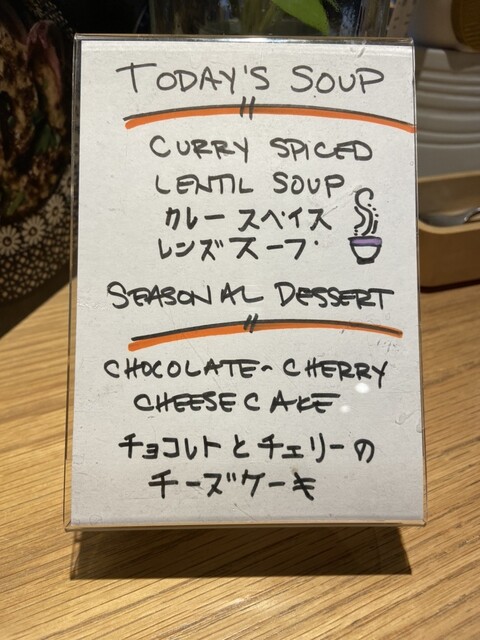 TODAY'S SOUP
CURRY SPICED
LENTIL SOUP
カレースペイス
レンズスープ
SEASONAL DESSERT
CHOCOLATE-CHERRY
CHEESE CAKE
チョコレトとチェリーの
チーズケーキ